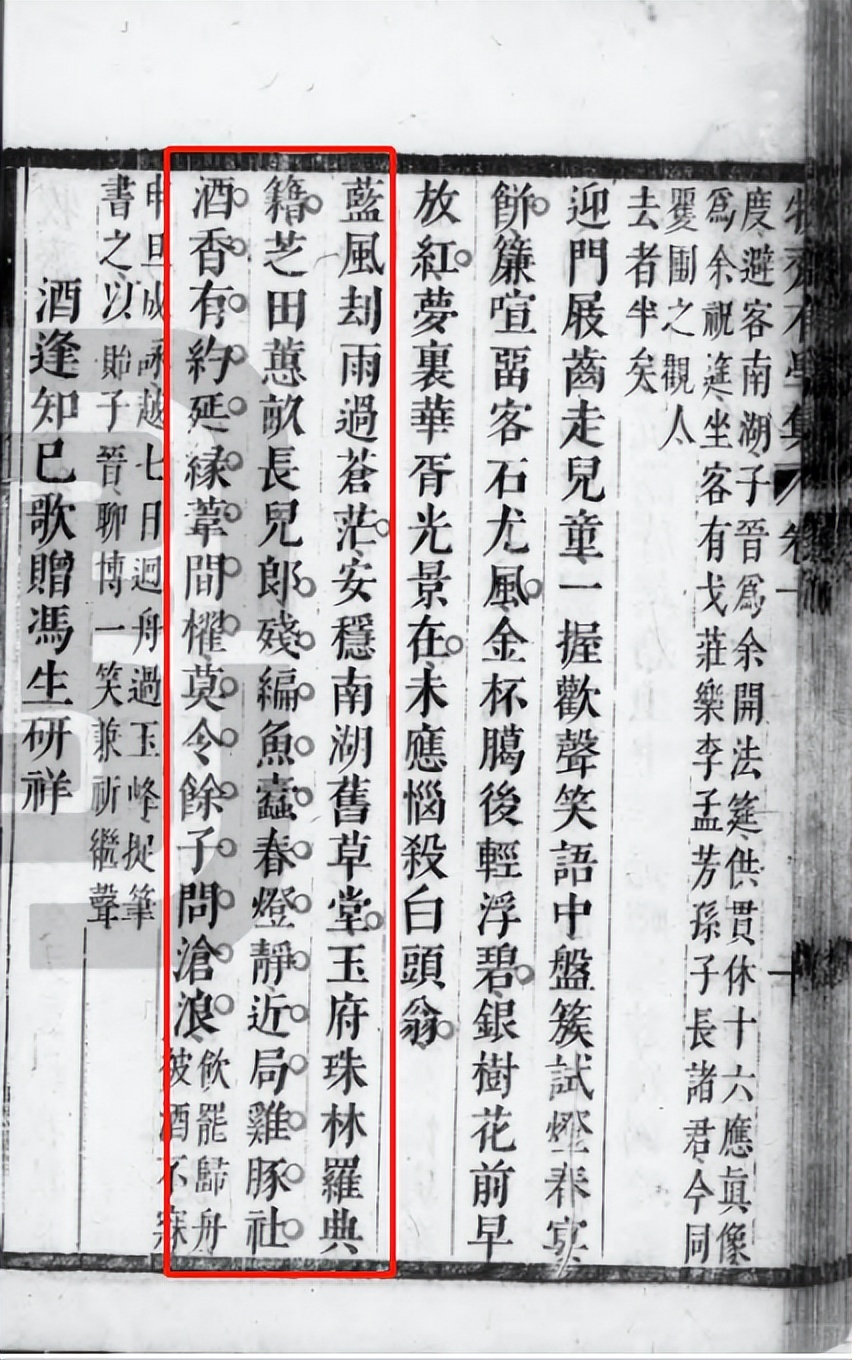 牧齋有學集 卷
度避客南湖子晉爲余開法筵供貫休十六應眞像
爲余祝筵坐客有戈莊樂李孟芳孫子長諸君今同
矍圃之觀人
去者半矣
迎門屐齒走兒童一握歡聲笑語中盤簇試燈春宴
餅簾喧畱客石尤風金杯臈後輕浮碧銀樹花前早
放紅夢裏華胥光景在未應惱殺白頭翁
藍風刧雨過蒼茫安穩南湖舊草堂玉府珠林羅典
籍芝田蕙畝長兒郎殘編魚蠹春燈靜近局雞豚社
酒香有約延緣葦間櫂莫令餘子問滄浪
飲罷歸舟
被酒不寐
申旦成詠越七日迴舟過玉峰捉筆
書之以貽子晉聊博一笑兼祈繼聲
酒逢知己歌贈馮生研祥